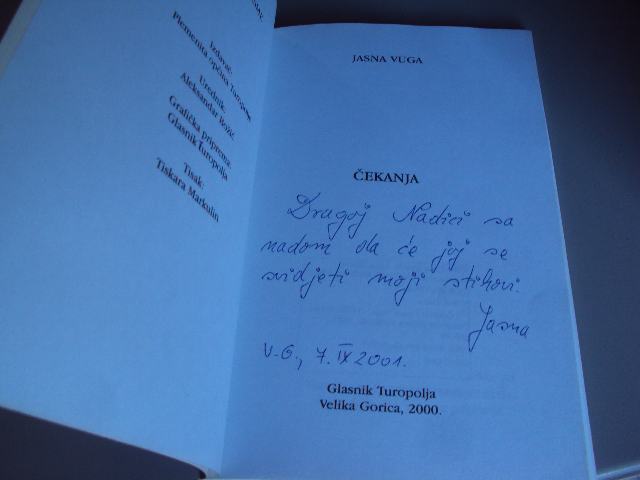 Izdavač:
Plemenita općina Turopolje
Urednik:
Aleksandar Božić
Grafička priprema:
Glasnik Turopolja
Tisak:
Tiskara Markulin
JASNA VUGA
ČEKANJA
Dragoj Nadici sa
nadom da će joj se
svidjeti moji stihovi.
Jasna
V.G., 7. IX 2001.
Glasnik Turopolja
Velika Gorica, 2000.